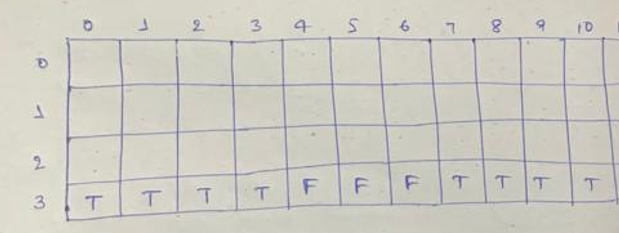 0 1 2 3 4 5 6 7 8 9 10
0
1
2
3 T T T T F F F T T T T